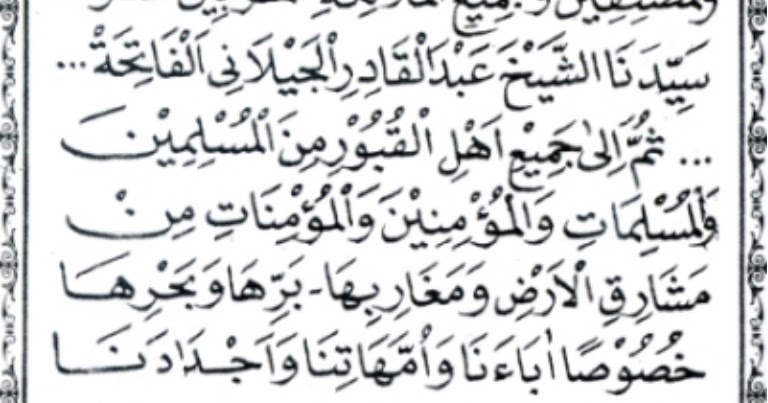 سَيِّدَنَا الشَّيْخَ عَبْدَ الْقَادِرِ الْجَيْلَانِى اَلْفَاتِحَةْ ...
... ثُمَّ اِلىٰ جَمِيْعِ اَهْلِ الْقُبُوْرِ مِنَ الْمُسْلِمِيْنَ
وَالْمُسْلِمَاتِ وَالْمُؤْمِنِيْنَ وَالْمُؤْمِنَاتِ مِنْ
مَشَارِقِ الْاَرْضِ وَمَغَارِبِهَا - بَرِّهَا وَبَحْرِهَا
خُصُوْصًا اٰبَاءَنَا وَاُمَّهَاتِنَا وَاَجْدَادَنَا